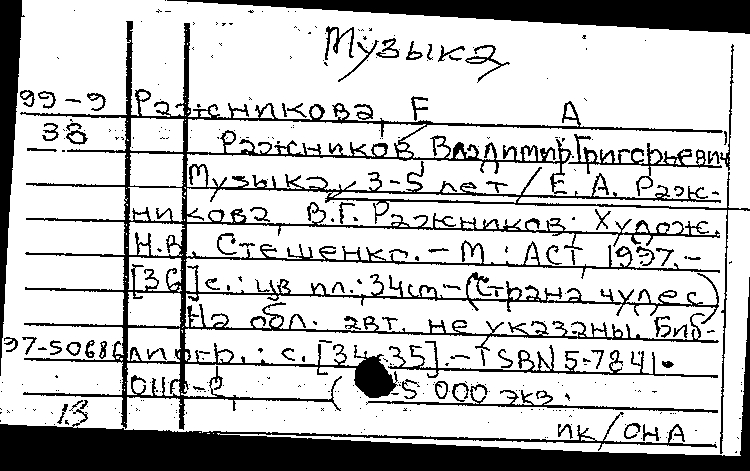 Музыка
99-9 Разжникова, Е А
38 Ражников, Владимир Григорьевич
Музыка, 3-5 лет / Е. А. Раж-
никова, В.Г. Ражников; Худож.
Н.В. Стешенко. - М.: АСТ, 1997.-
[36] с.: цв ил.; 34см-(Страна чудес)
На обл. авт. не указаны. Биб-
97-50686 лиогр.: с. [34-35].-ISBN 5-7841.
( 5 000 экз.
13 пк/ОНА